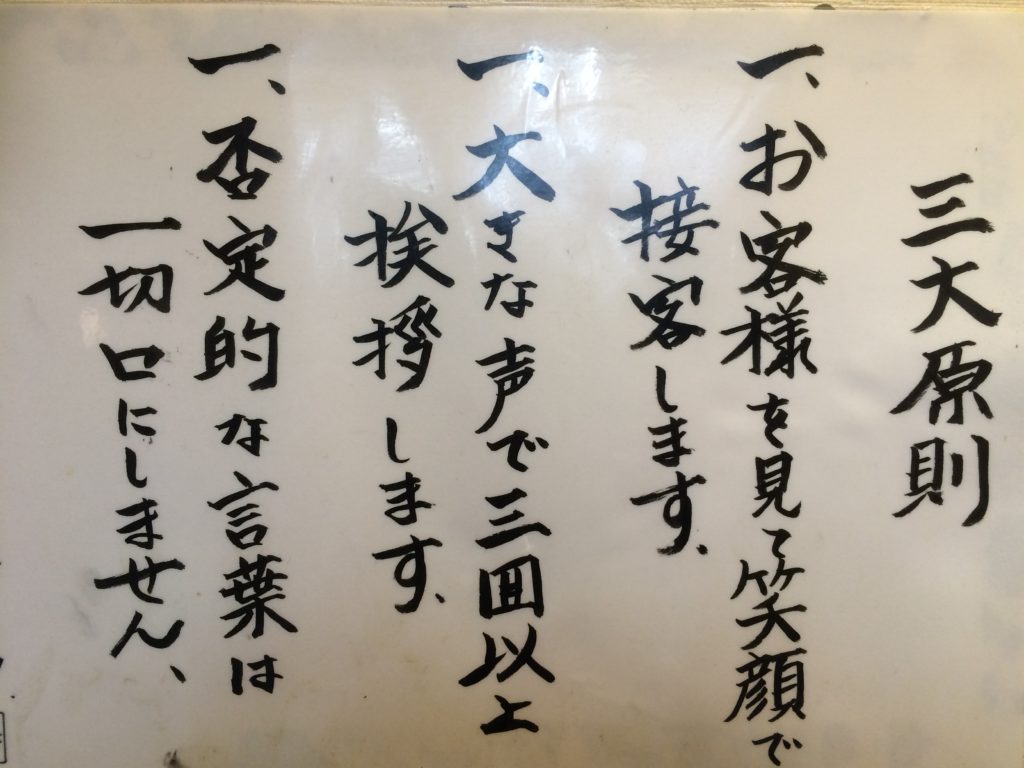 三大原則
一、お客様を見て笑顔で
接客します、
一、大きな声で三回以上
挨拶します、
一、否定的な言葉は
一切口にしません、